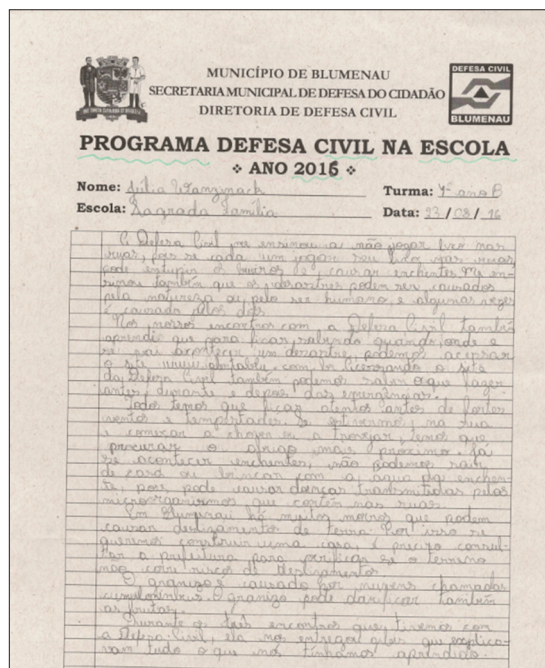 MUNICÍPIO DE BLUMENAU
SECRETARIA MUNICIPAL DE DEFESA DO CIDADÃO
DIRETORIA DE DEFESA CIVIL
DEFESA CIVIL
BLUMENAU
PROGRAMA DEFESA CIVIL NA ESCOLA
❖ ANO 2016 ❖
Nome: Júlia
Turma: 4º ano B
Escola: Sagrada Família
Data: 23/08/16
A Defesa Civil me ensinou a não jogar lixo nas
ruas, pois se cada um jogar seu lixo nas ruas,
pode entupir os bueiros e causar enchentes. Me en-
sinou também que os desastres podem ser causados
pela natureza ou pelo ser humano, e algumas vezes
é causado pelos dois.
Nos nossos encontros com a Defesa Civil também
aprendi que para ficar sabendo quando, onde e
se vai acontecer um desastre, podemos acessar
o site www.alertablu.com.br acessando o site
da Defesa Civil também podemos saber o que fazer
antes, durante e depois das emergências.
Todos temos que ficar atentos antes de fortes
ventos e tempestades. Se estivermos na rua
e começar a chover ou a trovejar, temos que
procurar o abrigo mais próximo. Já
se acontecer enchentes, não podemos sair
de casa ou brincar com a água da enchen-
te, pois pode causar doenças transmitidas pelos
microorganismos que contém nas ruas.
Em Blumenau há muitos morros que podem
causar deslizamentos de terra. Por isso se
queremos construir uma casa, é preciso consul-
tar a prefeitura para verificar se o terreno
não corre riscos de deslizamentos.
O granizo é causado por nuvens chamadas
cumulonimbus. O granizo pode danificar também
as frutas.
Durante os três encontros que tivemos com
a Defesa Civil, ela nos entregou gibis que explica-
vam tudo o que nós tínhamos aprendido.